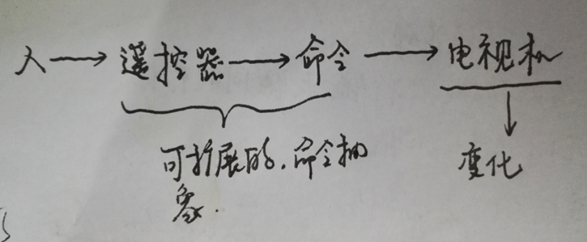 人→遥控器→命令→电视机
可扩展的,命令抽
象.
变化